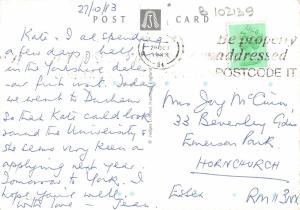 27/10/83
POST CARD
B 102139
Kate & I are spending
a few days of half
in the Yorkshire dales
our first visit. Today
we went to Durham
so that Kate could look
round the University,
she seems very keen on
applying next year.
Tomorrow to York. I
hope you're well.
With love - Jean.
Be properly
addressed
POSTCODE IT
Mrs Joy McCunn
33 Beverley Gdns
Emerson Park,
HORNCHURCH
Essex RM11